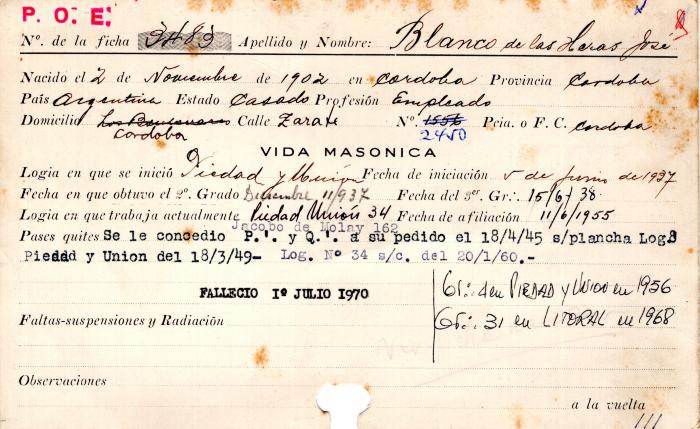 P. O. E.
Nº. de la ficha 3483 Apellido y Nombre: Blanco de las Heras José
Nacido el 2 de Noviembre de 1902 en Cordoba Provincia Cordoba
País Argentina Estado Casado Profesión Empleado
Domicilio Calle Zarate Nº. 1556 Pcia. o F. C. Cordoba
Cordoba 2450
VIDA MASONICA
Logia en que se inició Piedad y Unión Fecha de iniciación 5 de Junio de 1937
Fecha en que obtuvo el 2º. Grado Diciembre 11/937 Fecha del 3er. Gr∴. 15/6/38
Logia en que trabaja actualmente Piedad Unión 34 Fecha de afiliación 11/6/1955
Jacobo de Molay 162
Pases quites Se le concedio P.'. y Q.'. a su pedido el 18/4/45 s/plancha Log.
Piedad y Union del 18/3/49- Log. Nº 34 s/c. del 20/1/60.-
FALLECIO 1º JULIO 1970
Gr∴ 4 en PIEDAD y UNION en 1956
Gr∴ 31 en LITORAL en 1968
Faltas-suspensiones y Radiación
Observaciones
a la vuelta